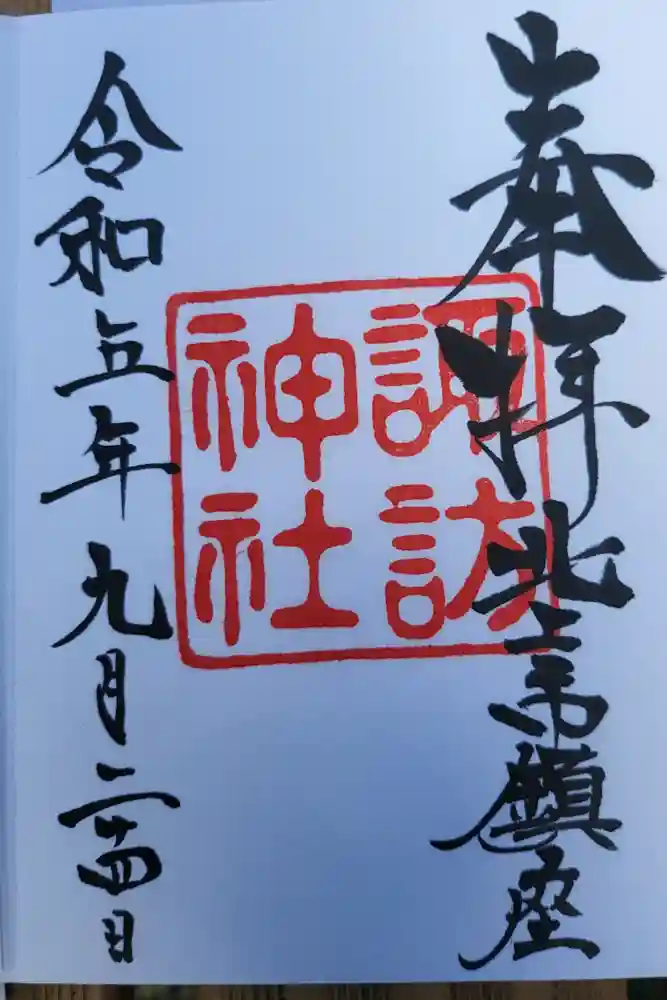 奉拝 北上市鎮座
諏訪
神社
令和五年九月二十四日